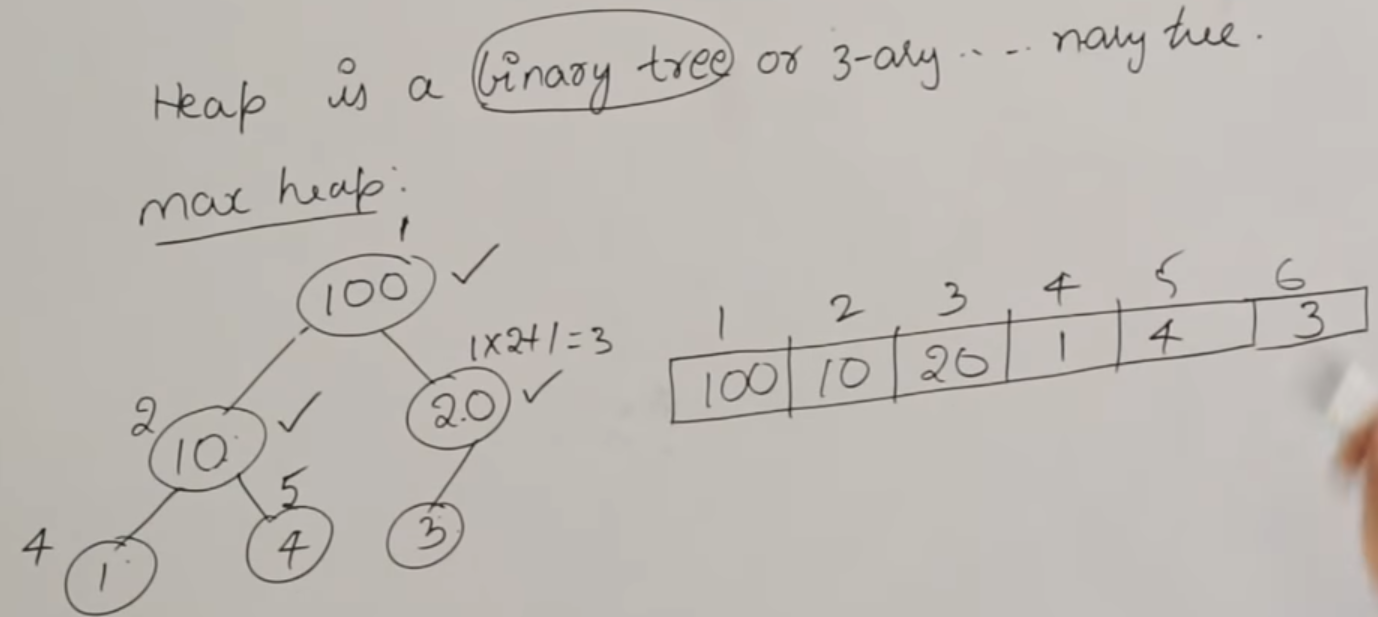 Heap is a binary tree or 3-ary .. -- nary tree.
max heap:
1
100
1x2+1=3
2
10
20
4
1
5
4
3
1 2 3 4 5 6
100 10 20 1 4 3